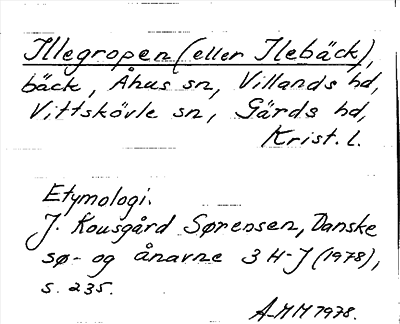 Illegropen (eller Ilebäck),
bäck, Åhus sn, Villands hd,
Vittskövle sn, Gärds hd,
Krist. l.
Etymologi.
J. Kousgård Sørensen, Danske
sø- og ånavne 3 H-J (1978),
s. 235.
A-MM 1978.